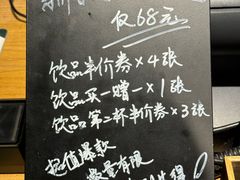 仅6.8元
饮品半价券×4张
饮品买一赠一×1张
饮品第二杯半价券×3张
超值爆款
数量有限